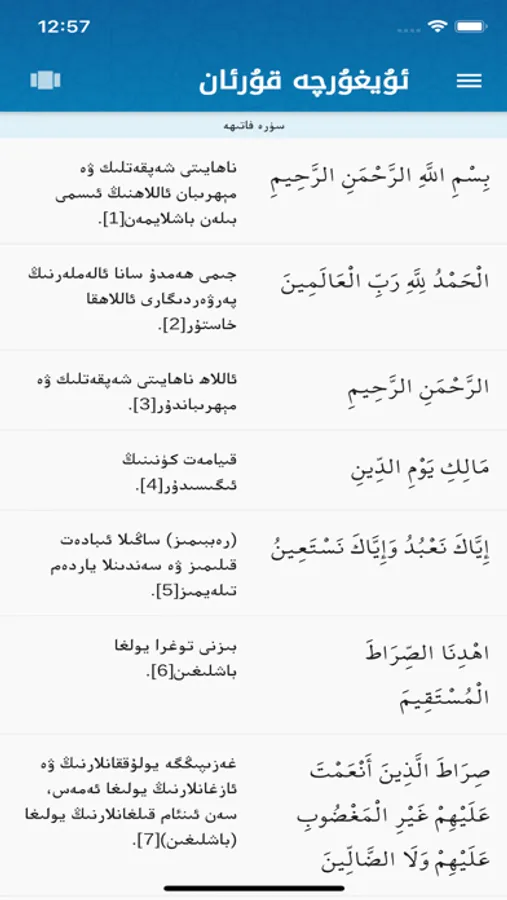 12:57
ئۇيغۇرچە قۇرئان
سۈرە فاتىھە
بِسْمِ اللَّهِ الرَّحْمَنِ الرَّحِيمِ
ناھايىتى شەپقەتلىك ۋە
مېھرىبان ئاللاھنىڭ ئىسمى
بىلەن باشلايمەن[1].
الْحَمْدُ لِلَّهِ رَبِّ الْعَالَمِينَ
جىمى ھەمدۇ سانا ئالەملەرنىڭ
پەرۋەردىگارى ئاللاھقا
خاستۇر[2].
الرَّحْمَنِ الرَّحِيمِ
ئاللاھ ناھايىتى شەپقەتلىك ۋە
مېھرىباندۇر[3].
مَالِكِ يَوْمِ الدِّينِ
قىيامەت كۈنىنىڭ
ئىگىسىدۇر[4].
إِيَّاكَ نَعْبُدُ وَإِيَّاكَ نَسْتَعِينُ
(رەببىمىز) ساڭىلا ئىبادەت
قىلىمىز ۋە سەندىنلا ياردەم
تىلەيمىز[5].
اهْدِنَا الصِّرَاطَ
الْمُسْتَقِيمَ
بىزنى توغرا يولغا
باشلىغىن[6].
صِرَاطَ الَّذِينَ أَنْعَمْتَ
عَلَيْهِمْ غَيْرِ الْمَغْضُوبِ
عَلَيْهِمْ وَلَا الضَّالِّينَ
غەزىپىڭگە يولۇققانلارنىڭ ۋە
ئازغانلارنىڭ يولىغا ئەمەس،
سەن ئىنئام قىلغانلارنىڭ يولىغا
(باشلىغىن)[7].